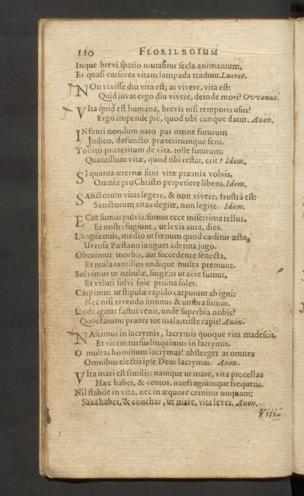 110 FLORILEGIUM
Inque brevi spatio mutantur secla animantum,
Et quasi cursores vitam lampada tradunt. Lucret.
NOn vixisse diu vita est, at vivere, vita est:
Quid juvat ergo diu vivere, deinde mori? Ovvenus.
VIta quid est humana, brevis nisi temporis usus?
Ergo impende piè, quod tibi cunque datur. Anon.
INfanti nondum nato par omne futurum
Judico, defuncto præteritumque seni.
Tollito præteritum de vita, tolle futurum:
Quantillum vitæ, quod tibi restat, erit? Idem.
SI quanta æternæ sunt vitæ præmia volvis,
Omnia pro Christo perpetiere libens. Idem.
SAnctorum vitas legere, & non vivere, frustrà est:
Sanctorum vitas degite, non legite. Idem.
ECce sumus pulvis, sumus ecce miserrima tellus,
Et nostri fugiunt, ut levis aura, dies.
Languemus, medio ut fœnum quod cæditur æstu,
Ut rosa Pæstano languet adempta jugo.
Obruimur morbis, aut succedente senecta,
Et mala tantillos undique multa premunt.
Solvimur ut nebulæ, surgens ut aëre fumus,
Et veluti solvi sole pruina solet.
Carpimur ut stipulæ rapido carpuntur ab igni:
Nec nisi vivendo somnus & umbra sumus.
Unde igitur fastus venit, unde superbia nobis?
Quos fatuum præter tot mala, triste rapit? Anon.
NAscimur in lacrymis, lacrymis quoque vita madescit,
Et vitam rursus linquimus in lacrymis.
O multas hominum lacrymas! absterget at omnes
Omnibus electis ipse Deus lacrymas. Anon.
VIta mari est similis: namque ut mare, vita procellas
Hæc habet, & ventos, naufragiumque frequens.
Nil stabile in vita, nec in æquore cernitur unquam;
Saxa habet, & conchas, ut mare, vita leves. Anon.